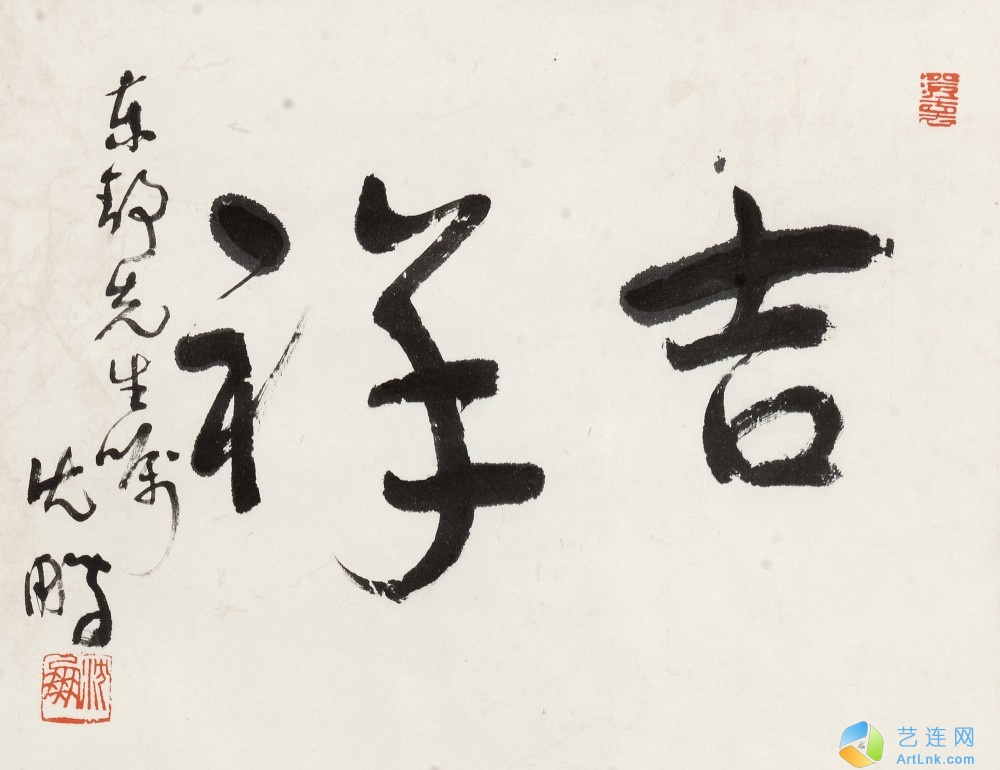 吉祥
东舒先生嘱
沈鹏
艺连网
ArtLnk.com